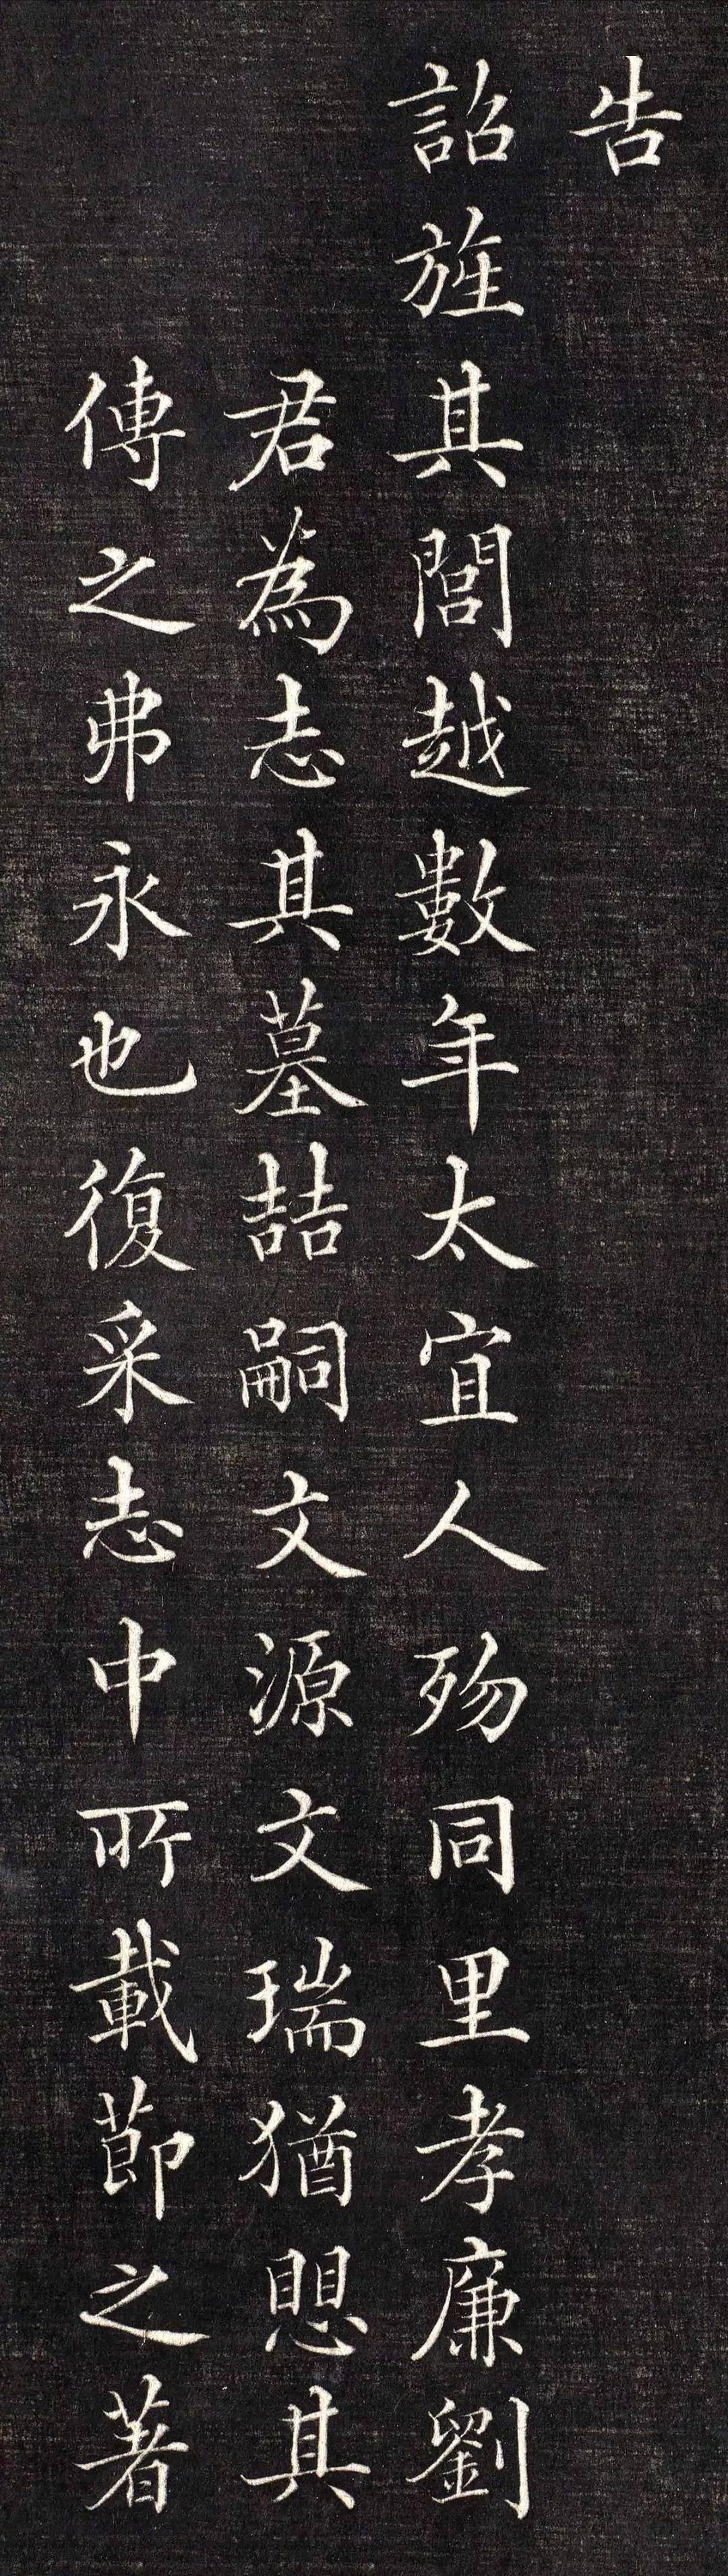 告
詔旌其閭越數年太宜人歿同里孝廉劉
君為志其墓喆嗣文源文瑞猶愳其
傳之弗永也復采志中所載節之著